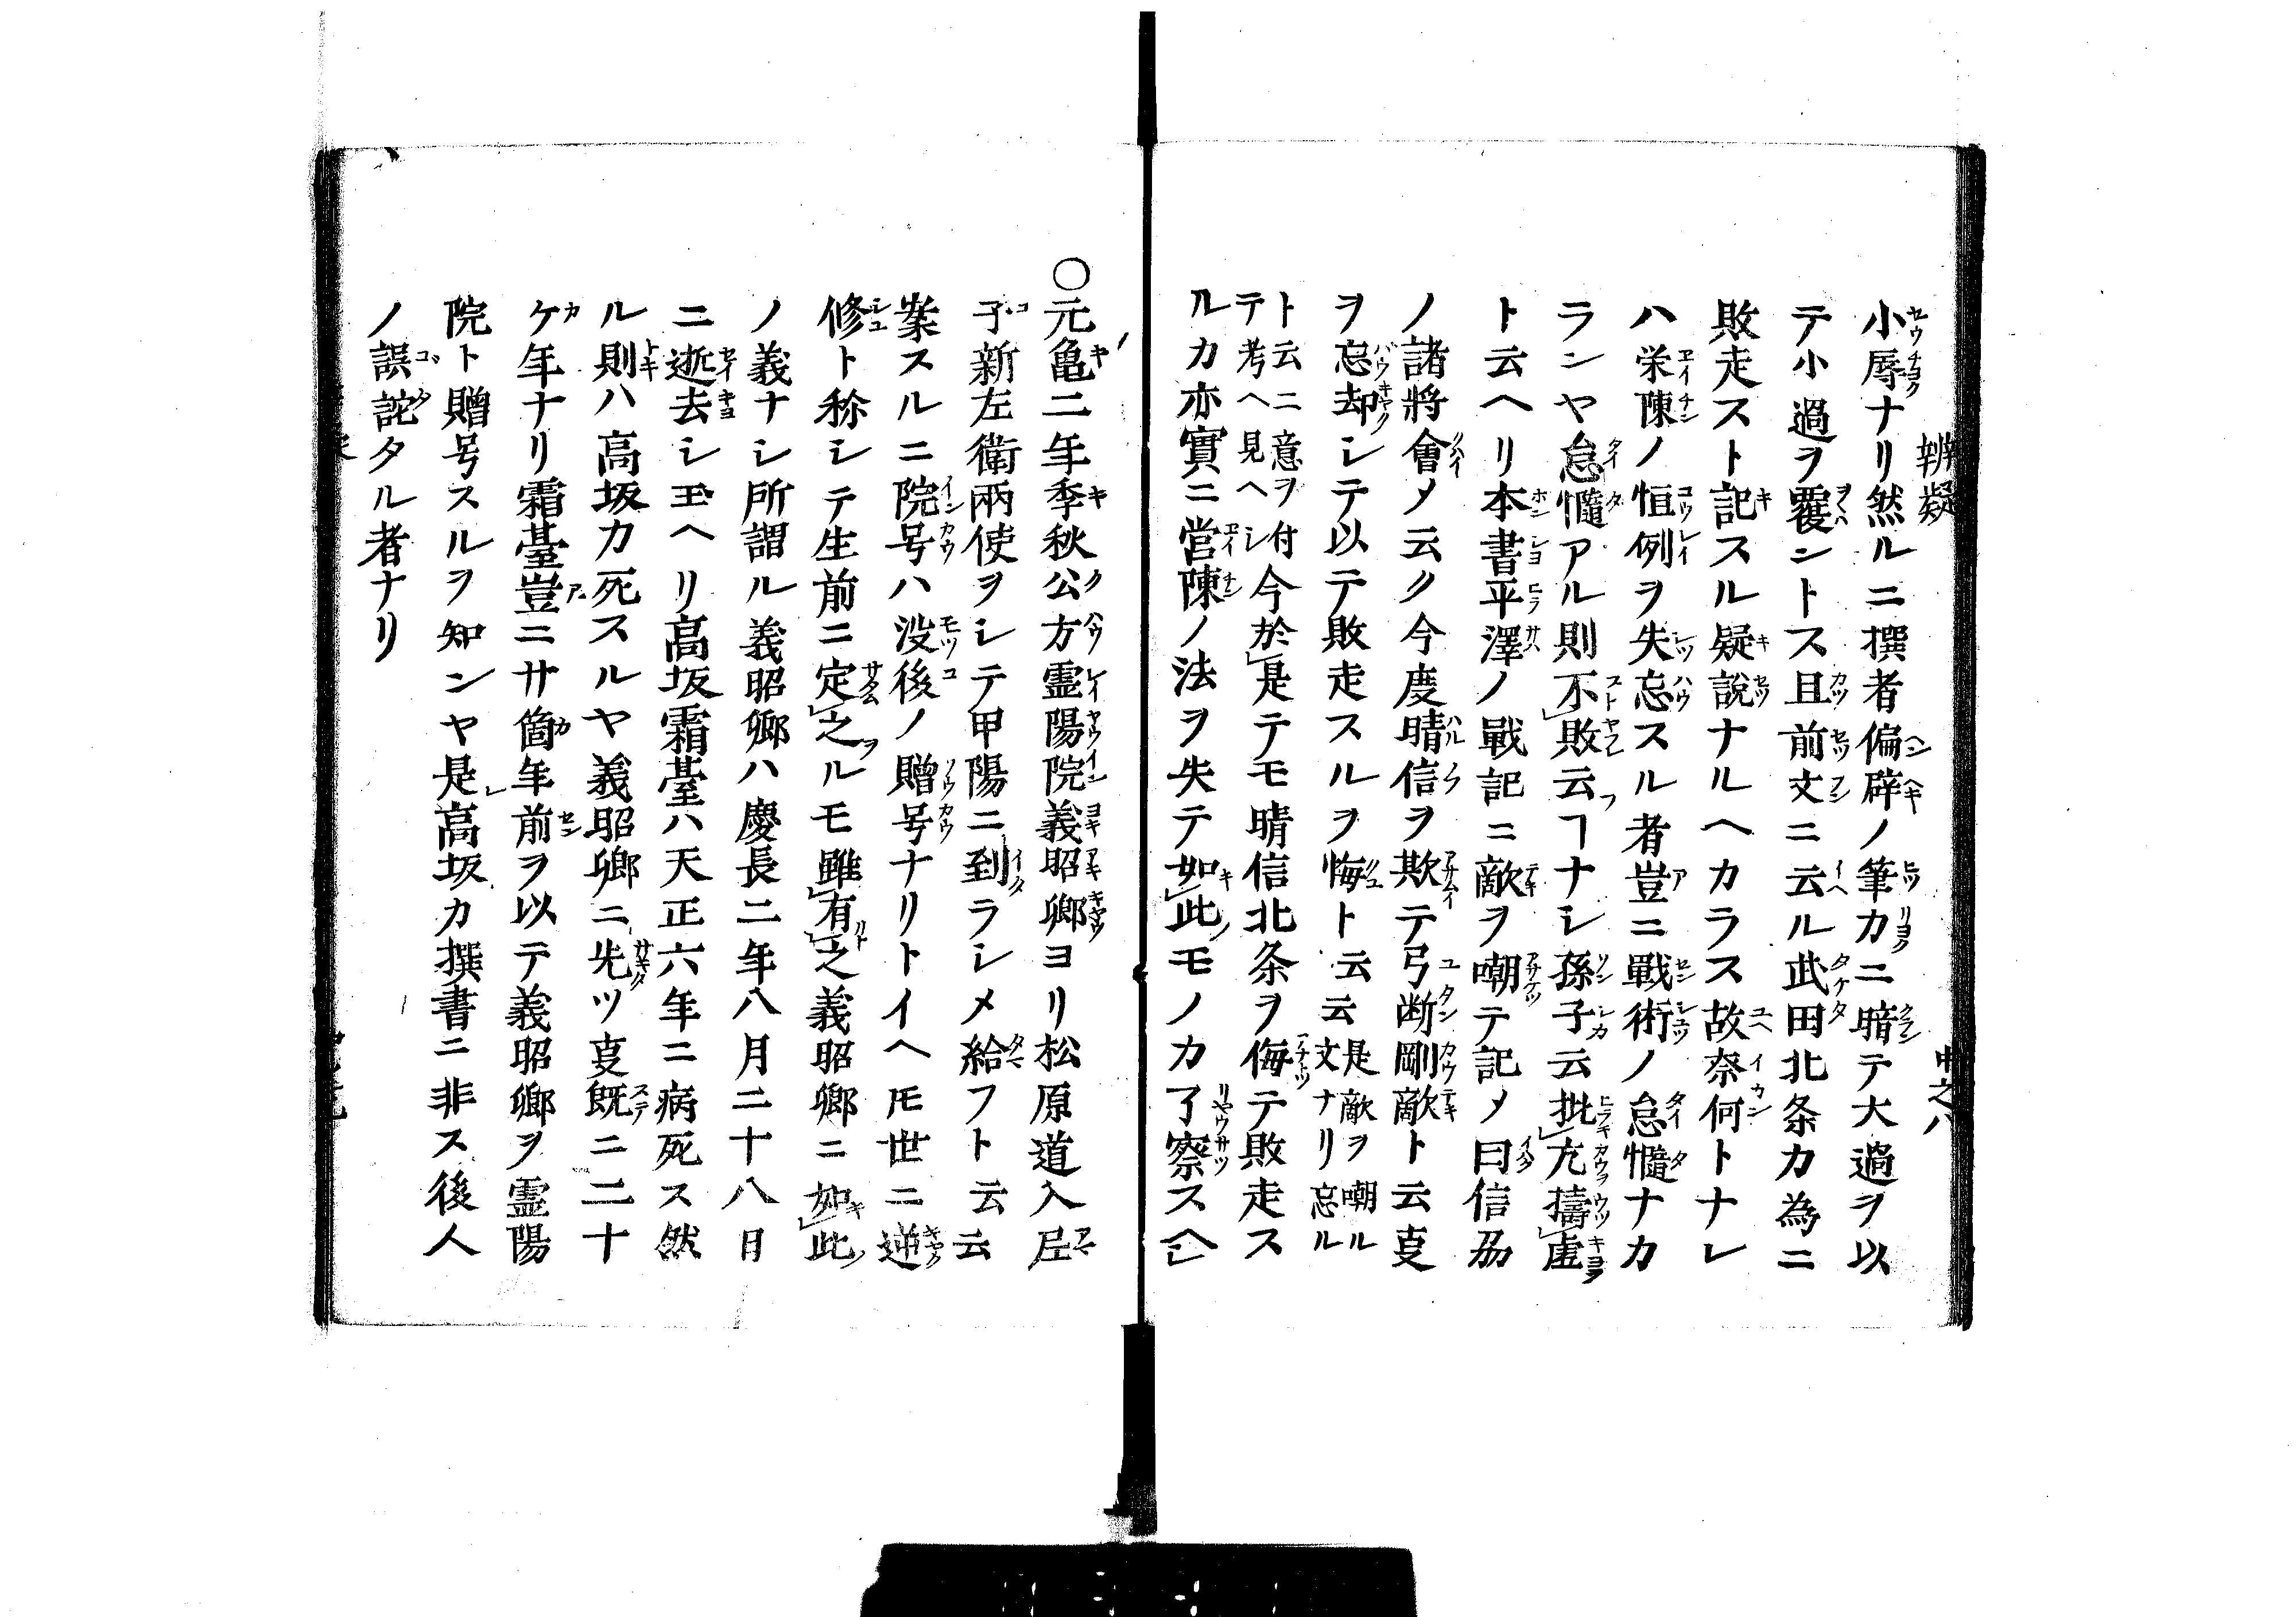 辨疑
中之八
小辱ナリ然ルニ撰者偏辟ノ筆力ニ暗テ大過ヲ以
テ小過ヲ覆ントス且前文ニ云ル武田北条カ為ニ
敗走スト記スル疑說ナルヘカラス故奈何トナレ
ハ栄陳ノ恒例ヲ失忘スル者豈ニ戰術ノ怠惰ナカ
ランヤ怠惰アル則不敗云ヿナシ孫子云批亢擣虛
ト云ヘリ本書平澤ノ戰記ニ敵ヲ嘲テ記メ曰信刕
ノ諸將會メ云ク今度晴信ヲ欺テ弓断剛敵ト云叓
ヲ忘却シテ以テ敗走スルヲ悔ト云云是敵ヲ嘲ル文ナリ忘ル
ト云ニ意ヲ付テ考ヘ見ヘシ今於是テモ晴信北条ヲ侮テ敗走ス
ルカ亦實ニ営陳ノ法ヲ失テ如此モノカ了察スヘシ
〇元亀二年季秋公方霊陽院義昭卿ヨリ松原道入尼
子新左衛兩使ヲシテ甲陽ニ到ラシメ給フト云云
案スルニ院号ハ没後ノ贈号ナリトイヘ𪜈世ニ逆
修ト称シテ生前ニ定之ルモ雖有之義昭卿ニ如此
ノ義ナシ所謂ル義昭卿ハ慶長二年八月二十八日
ニ逝去シ玉ヘリ高坂霜臺ハ天正六年ニ病死ス然
ル則ハ高坂カ死スルヤ義昭卿ニ先ツ叓既ニ二十
ケ年ナリ霜臺豈ニ廿箇年前ヲ以テ義昭卿ヲ霊陽
院ト贈号スルヲ知ンヤ是高坂カ撰書ニ非ス後人
ノ誤詑タル者ナリ